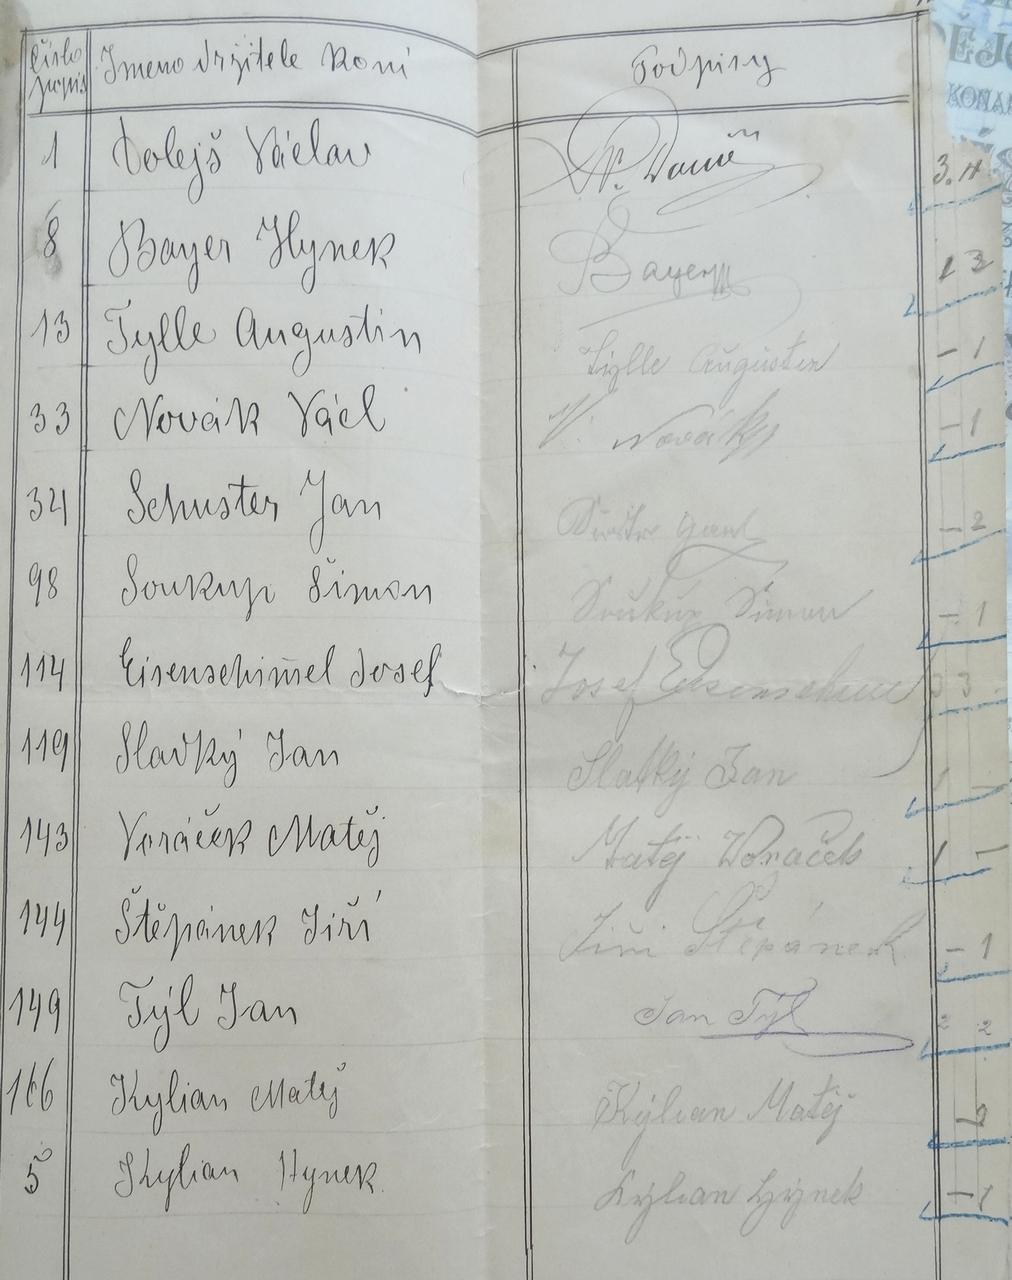 Číslo popis. Jmeno držitele koní Podpisy
1 Dolejš Václav 3. 4
8 Bayer Hynek Bayer 1 3
13 Tylle Augustin Tylle Augustin - 1
33 Novák Václ V. Novák - 1
34 Schuster Jan - 2
98 Soukup Šimon Soukup Simon - 1
114 Eisenschim̄el Josef Josef 3 3
119 Sladký Jan Slatký Jan 1 -
143 Voráček Matěj Matěj Woraček 1 -
144 Štěpánek Jiří Jiři Štěpánek - 1
149 Týl Jan Jan Týl 2 2
166 Kylian Matěj Kýlian Matěj - 2
5 Kylian Hynek Kýlian Hýnek - 1